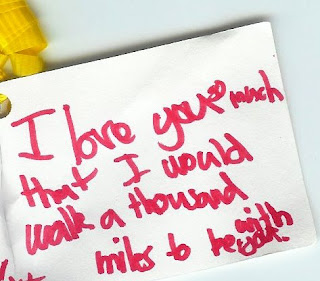 I love you so much
that I would
walk a thousand
miles to be with
you.